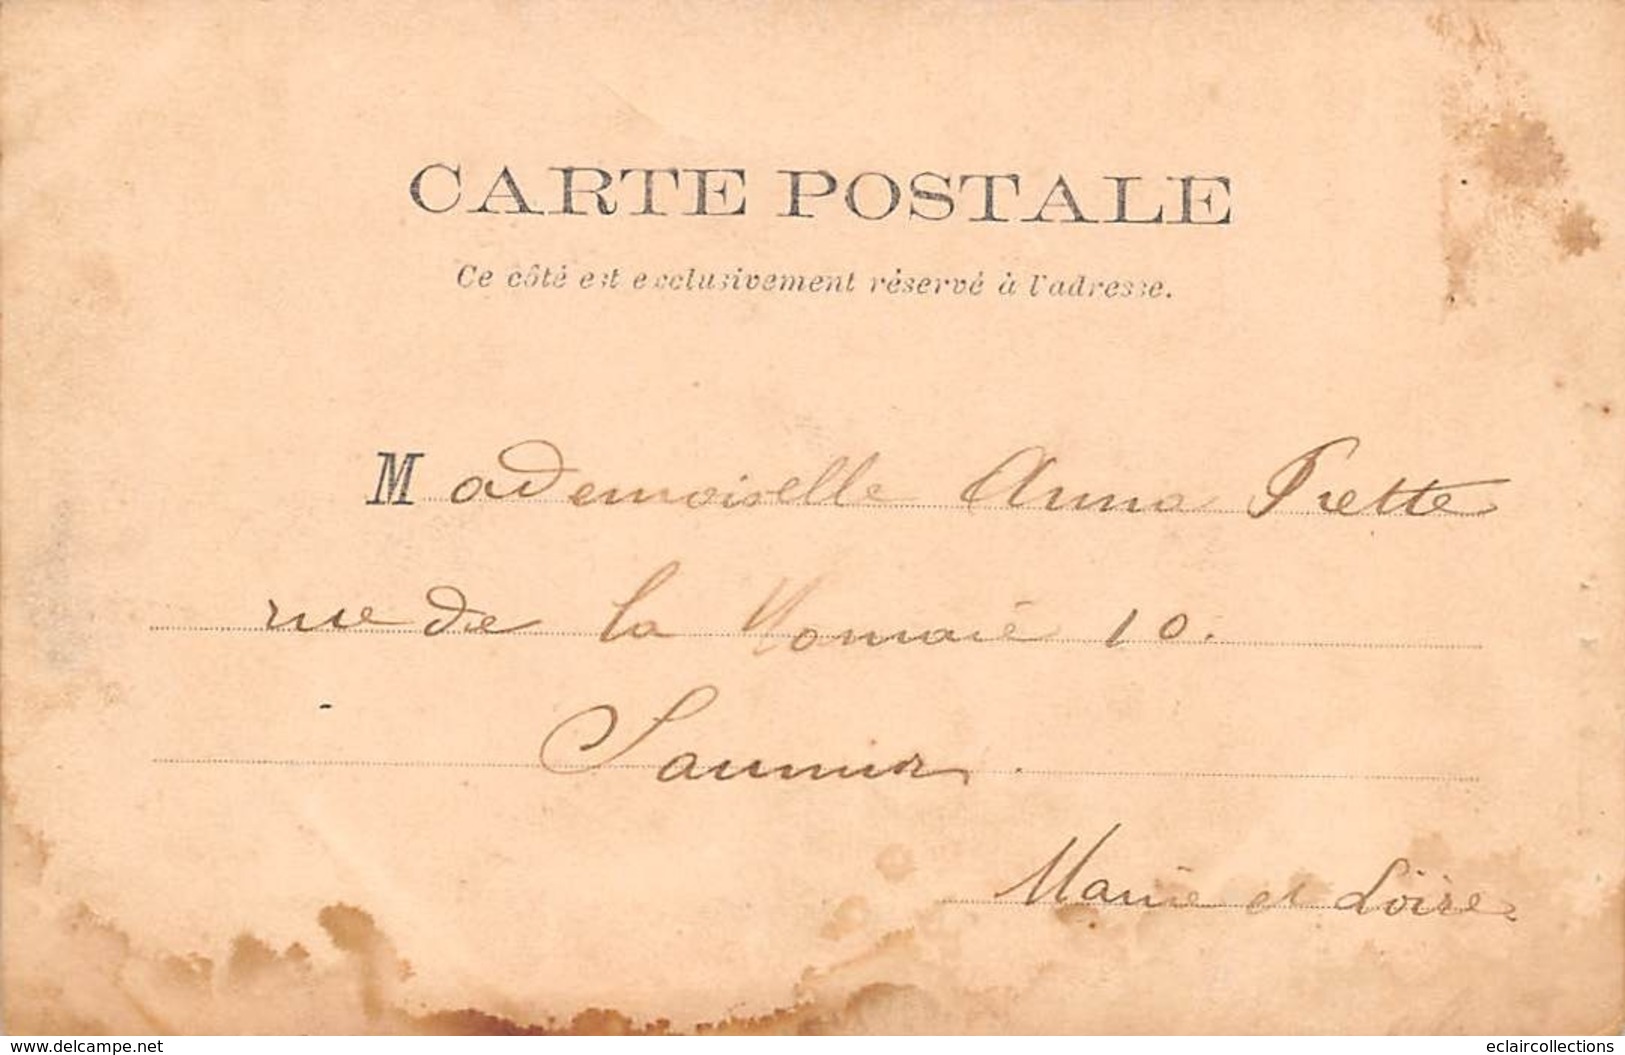 CARTE POSTALE
Ce côté est exclusivement réservé à l'adresse.
Mademoiselle Anna Prette
rue de la Monnaie 10.
Saumur.
Maine et Loire
www.delcampe.net eclaircollections